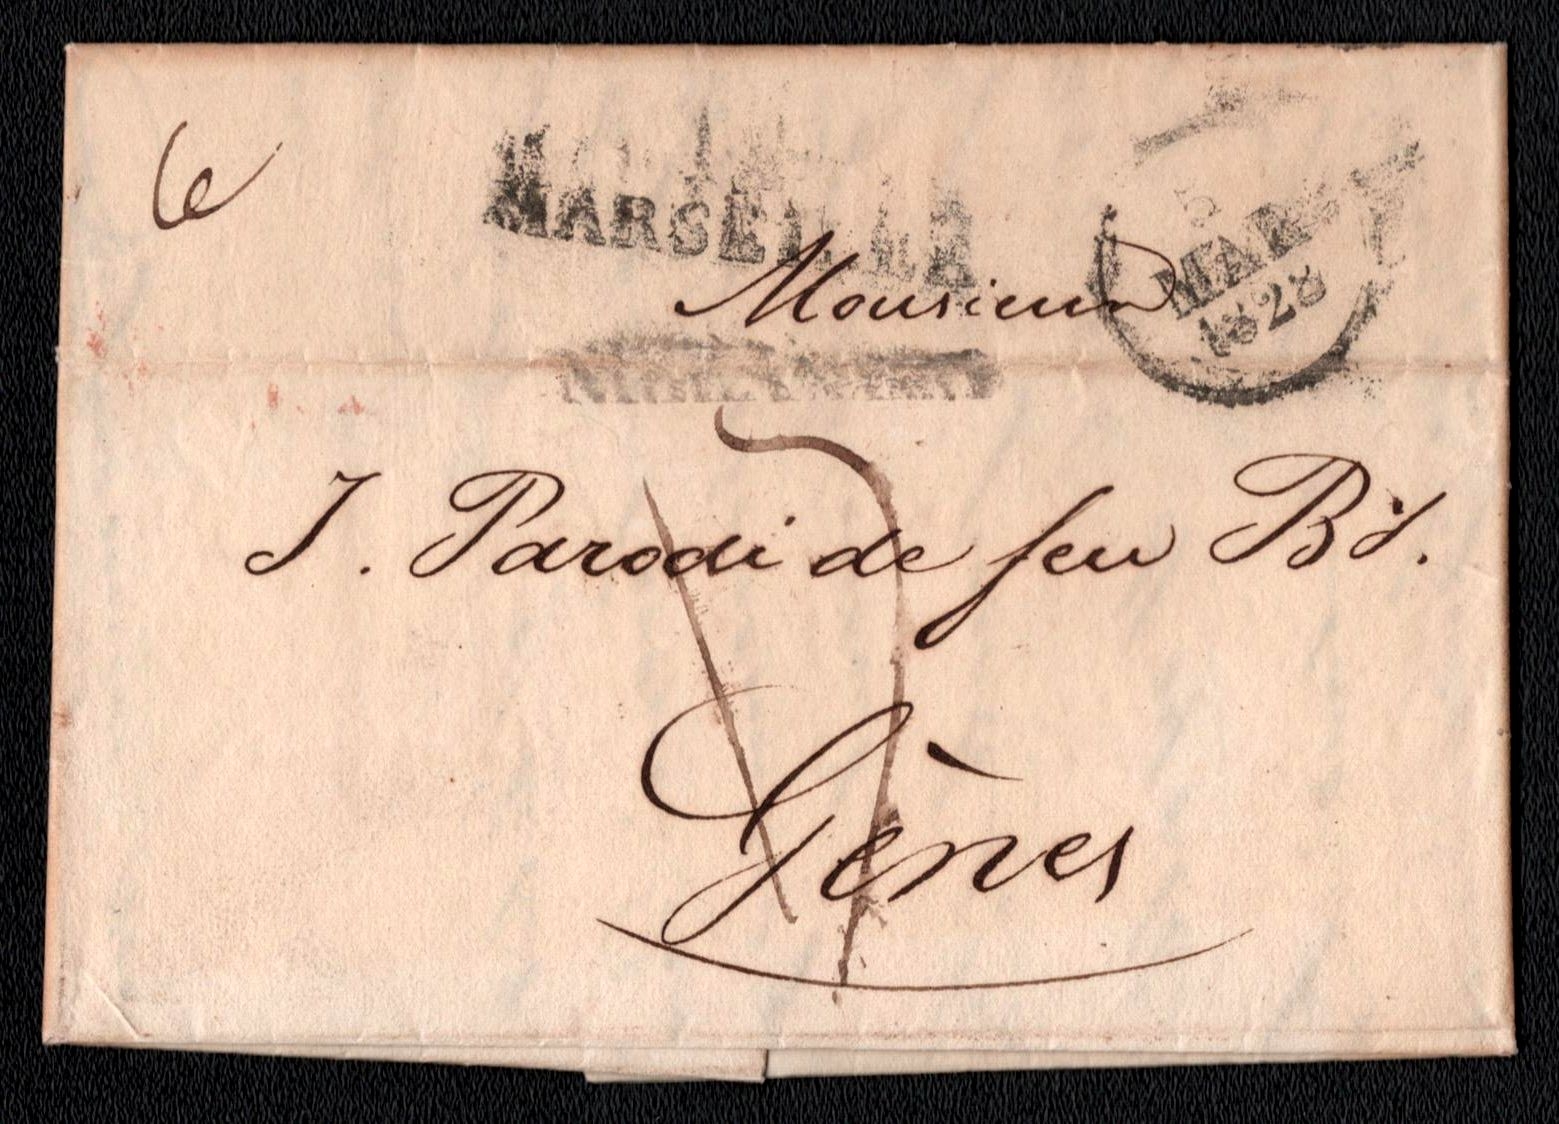 6
MARSEILLE
MARS
1828
Monsieur
J. Parodi de feu Bt.
17
Gènes